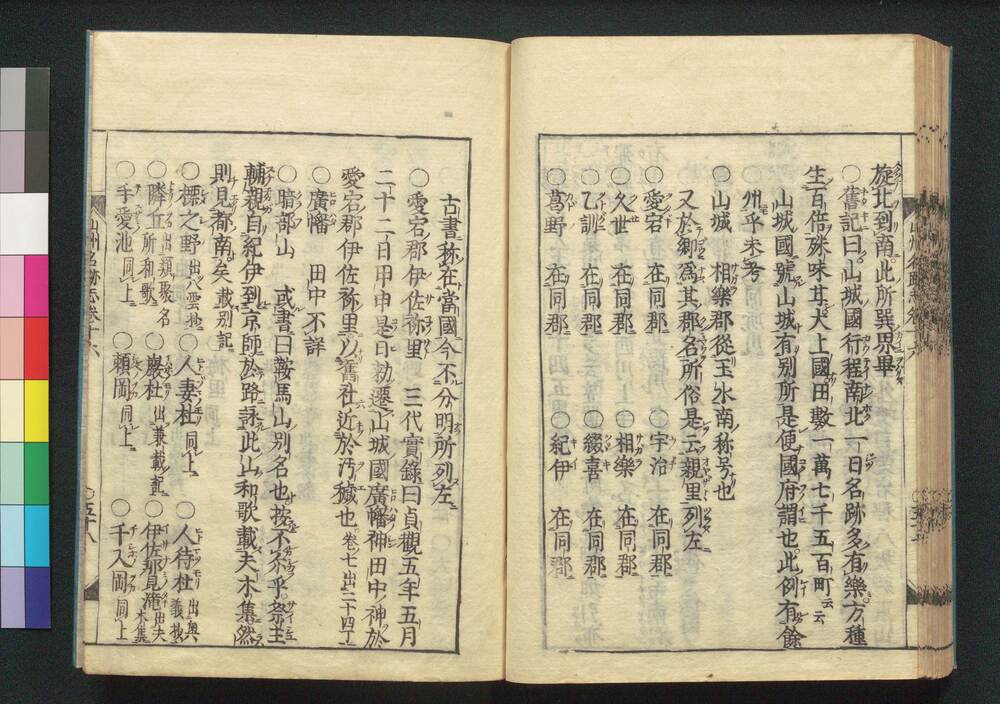 旋北到南此所巽界畢
○舊記曰山城國行程南北一日名跡多有樂方種
生百倍殊味甘大上國田數一萬七千五百町云云
山城國號山城有別所是便國府謂也此例有餘
州乎未考
○山城　相樂郡從玉水南称号也
又於鄉爲其郡名所俗是云親里列左
○愛宕　在同郡　○宇治　在同郡
○久世　在同郡　○相樂　在同郡
○乙訓　在同郡　○綴喜　在同郡
○葛野　在同郡　○紀伊　在同郡
古書称在當國今不分明所列左
○愛宕郡伊佐祢里　三代實錄曰貞觀五年五月
二十二日甲申是日勅遷山城國廣幡神田中神於
愛宕郡伊佐祢里以舊社近於汚穢也 卷七出二十四丁
○廣幡　田中不詳
○暗部山　或書曰鞍馬山別名也按不尓乎祭主
輔親自紀伊到京師於路詠此山和歌載夫木集然
則見都南矣載別記
○標之野 出八雲抄 ○人妻杜 同上 ○人待杜 出奥義抄
○隣丘 出類聚名所和歌 ○巖杜 出兼載記 ○伊佐那見滝 出夫木集
○手愛池 同上 ○頼岡 同上 ○千入岡 同上
山州名跡志卷十六
○五十八